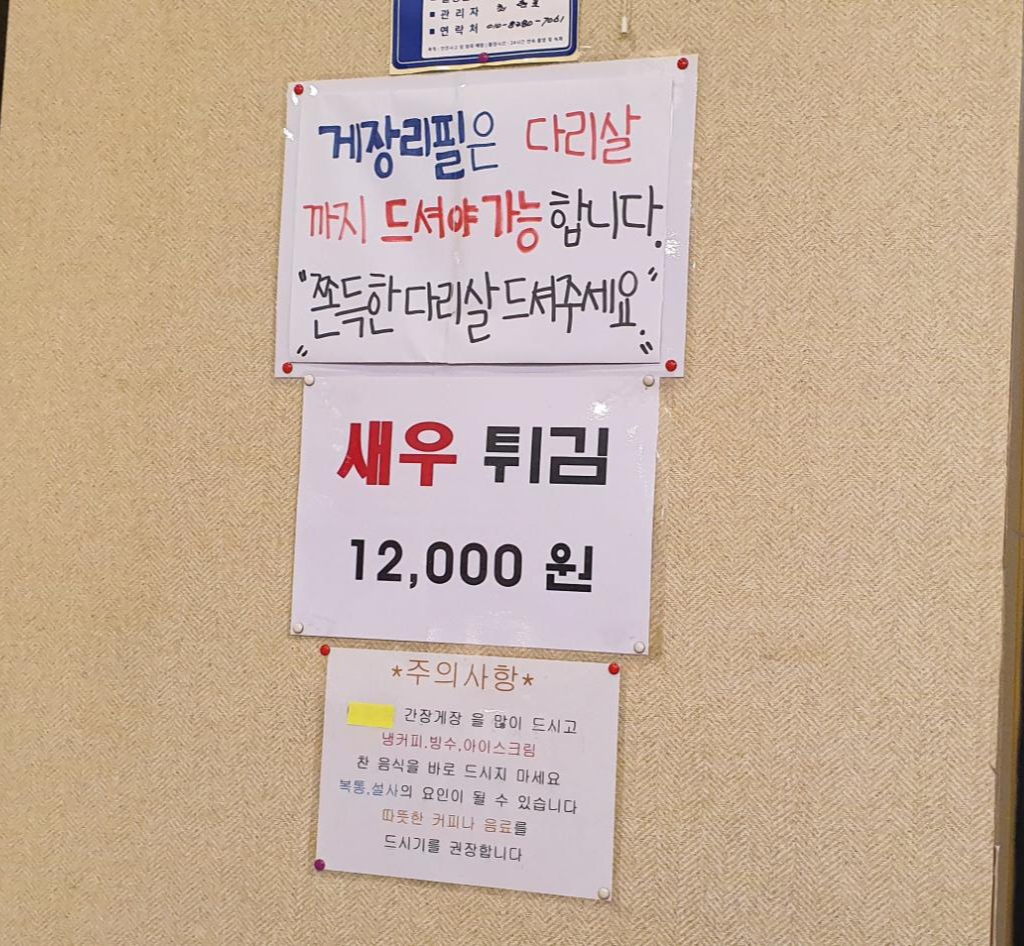 ■ 관리자
■ 연락처 010-8780-7061
게장리필은 다리살
까지 드셔야 가능합니다.
"쫀득한 다리살 드셔주세요."
새우 튀김
12,000 원
*주의사항*
간장게장 을 많이 드시고
냉커피,빙수,아이스크림
찬 음식을 바로 드시지 마세요
복통,설사의 요인이 될 수 있습니다
따뜻한 커피나 음료를
드시기를 권장합니다